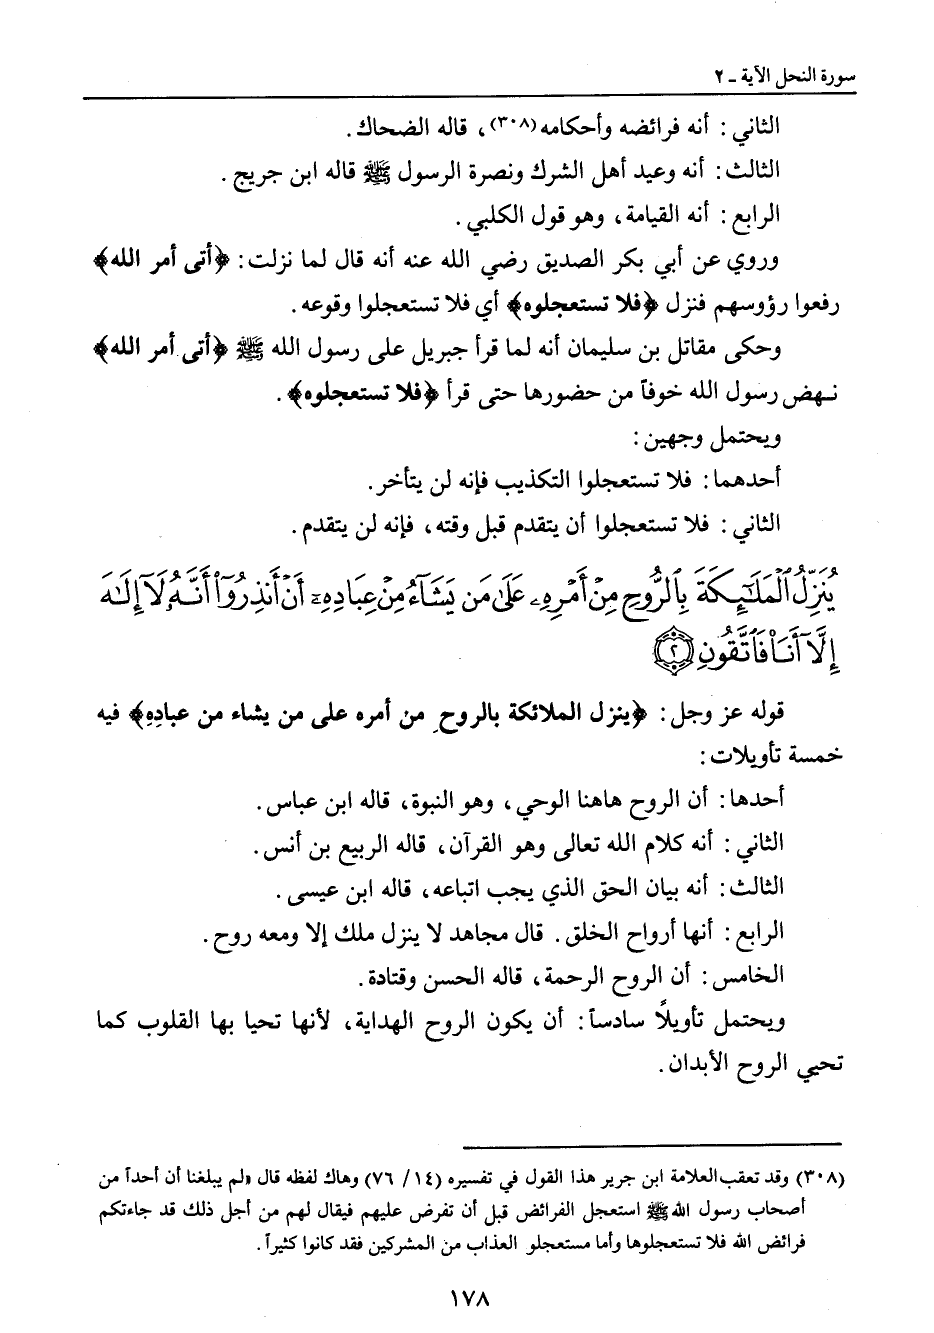 سورة النحل الآية ـ ٢
الثاني: أنه فرائضه وأحكامه(٣٠٨)، قاله الضحاك.
الثالث: أنه وعيد أهل الشرك ونصرة الرسول ﷺ قاله ابن جريج.
الرابع: أنه القيامة، وهو قول الكلبي.
وروي عن أبي بكر الصديق رضي الله عنه أنه قال لما نزلت: ﴿أتى أمر الله﴾
رفعوا رؤوسهم فنزل ﴿فلا تستعجلوه﴾ أي فلا تستعجلوا وقوعه.
وحكى مقاتل بن سليمان أنه لما قرأ جبريل على رسول الله ﷺ ﴿أتى أمر الله﴾
نهض رسول الله خوفاً من حضورها حتى قرأ ﴿فلا تستعجلوه﴾.
ويحتمل وجهين:
أحدهما: فلا تستعجلوا التكذيب فإنه لن يتأخر.
الثاني: فلا تستعجلوا أن يتقدم قبل وقته، فإنه لن يتقدم.
يُنَزِّلُ ٱلْمَلَٰٓئِكَةَ بِٱلرُّوحِ مِنْ أَمْرِهِۦ عَلَىٰ مَن يَشَآءُ مِنْ عِبَادِهِۦٓ أَنْ أَنذِرُوٓا۟ أَنَّهُۥ لَآ إِلَٰهَ
إِلَّآ أَنَا۠ فَٱتَّقُونِ ٢
قوله عز وجل: ﴿ينزل الملائكة بالروح من أمره على من يشاء من عبادِهِ﴾ فيه
خمسة تأويلات:
أحدها: أن الروح هاهنا الوحي، وهو النبوة، قاله ابن عباس.
الثاني: أنه كلام الله تعالى وهو القرآن، قاله الربيع بن أنس.
الثالث: أنه بيان الحق الذي يجب اتباعه، قاله ابن عيسى.
الرابع: أنها أرواح الخلق. قال مجاهد لا ينزل ملك إلا ومعه روح.
الخامس: أن الروح الرحمة، قاله الحسن وقتادة.
ويحتمل تأويلاً سادساً: أن يكون الروح الهداية، لأنها تحيا بها القلوب كما
تحيي الروح الأبدان.
(٣٠٨) وقد تعقب العلامة ابن جرير هذا القول في تفسيره (١٤/ ٧٦) وهاك لفظه قال «لم يبلغنا أن أحداً من
أصحاب رسول الله ﷺ استعجل الفرائض قبل أن تفرض عليهم فيقال لهم من أجل ذلك قد جاءتكم
فرائض الله فلا تستعجلوها وأما مستعجلو العذاب من المشركين فقد كانوا كثيراً.
١٧٨